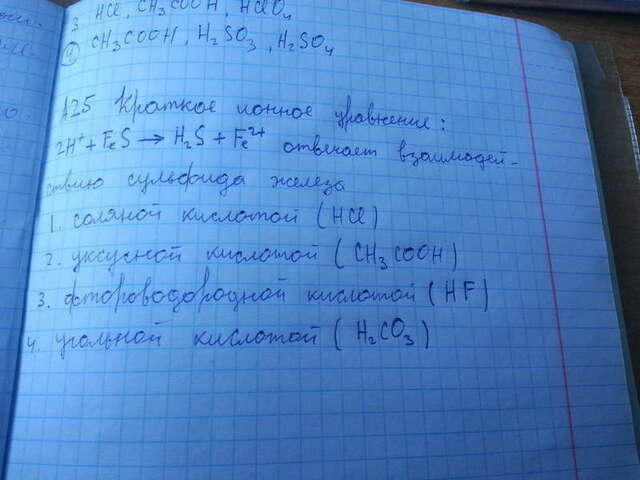 3. HCl, CH₃COOH, HClO₄
④ CH₃COOH, H₂SO₃, H₂SO₄
A25 Краткое ионное уравнение:
2H⁺ + FeS → H₂S + Fe²⁺ отвечает взаимодей-
ствию сульфида железа
1. соляной кислотой (HCl)
2. уксусной кислотой (CH₃COOH)
3. фтороводородной кислотой (HF)
4. угольной кислотой (H₂CO₃)